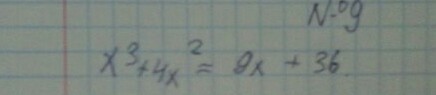 N-º9
x³+4x² = 9x + 36.